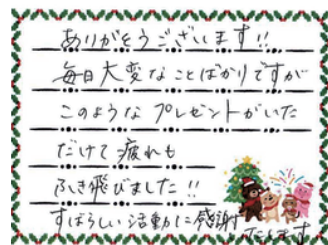 ありがとうございます!!
毎日大変なことばかりですが
このような プレゼントがいた
だけて 疲れも
ふき飛びました!!
すばらしい活動に感謝
いたします